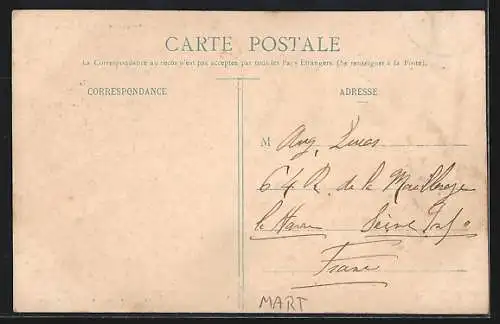 CARTE POSTALE
La Correspondance au recto n'est pas acceptée par tous les Pays Etrangers. (Se renseigner à la Poste).
CORRESPONDANCE
ADRESSE
M Aug. Lucas
64 R. de la Mailleraye
le Havre Seine Infre
France
MART